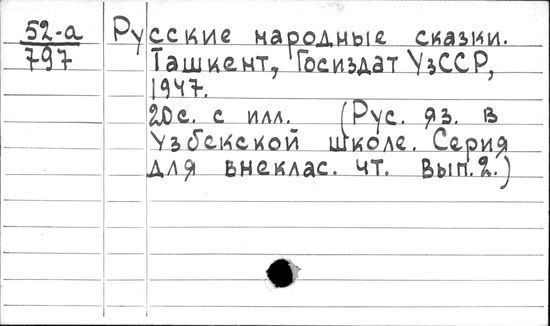 52-а Русские народные сказки.
797 Ташкент, Госиздат УзССР,
1947.
20с. с илл. (Рус. яз. в
Узбекской школе. Серия
для внеклас. чт. Вып. 2.)